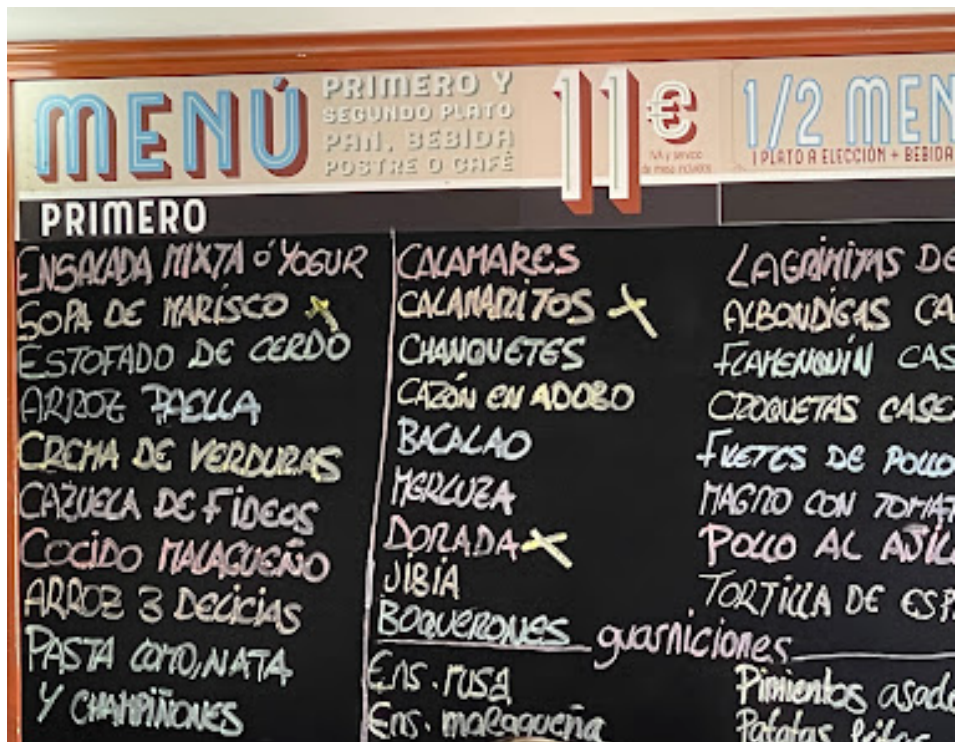 MENÚ
PRIMERO Y
SEGUNDO PLATO
PAN, BEBIDA
POSTRE O CAFÉ
11€
IVA y servicio
de mesa incluidos
1/2 MEN
1 PLATO A ELECCIÓN + BEBIDA
PRIMERO
ENSALADA MIXTA ó YOGUR
SOPA DE MARISCO
ESTOFADO DE CERDO
ARROZ PAELLA
CREMA DE VERDURAS
CAZUELA DE FIDEOS
COCIDO MALAGUEÑO
ARROZ 3 DELICIAS
PASTA COMO, NATA
Y CHAMPIÑONES
CALAMARES
CALAMARITOS
CHANQUETES
CAZÓN EN ADOBO
BACALAO
MERLUZA
DORADA
JIBIA
BOQUERONES
LAGRIMITAS DE
ALBONDIGAS CA
FLAMENQUÍN CAS
CROQUETAS CASE
FILETES DE POLLO
MAGRO CON TOMAT
POLLO AL AJILL
TORTILLA DE ESP
guarniciones
Ens. rusa
Ens. malagueña
Pimientos asado
Patatas fritas